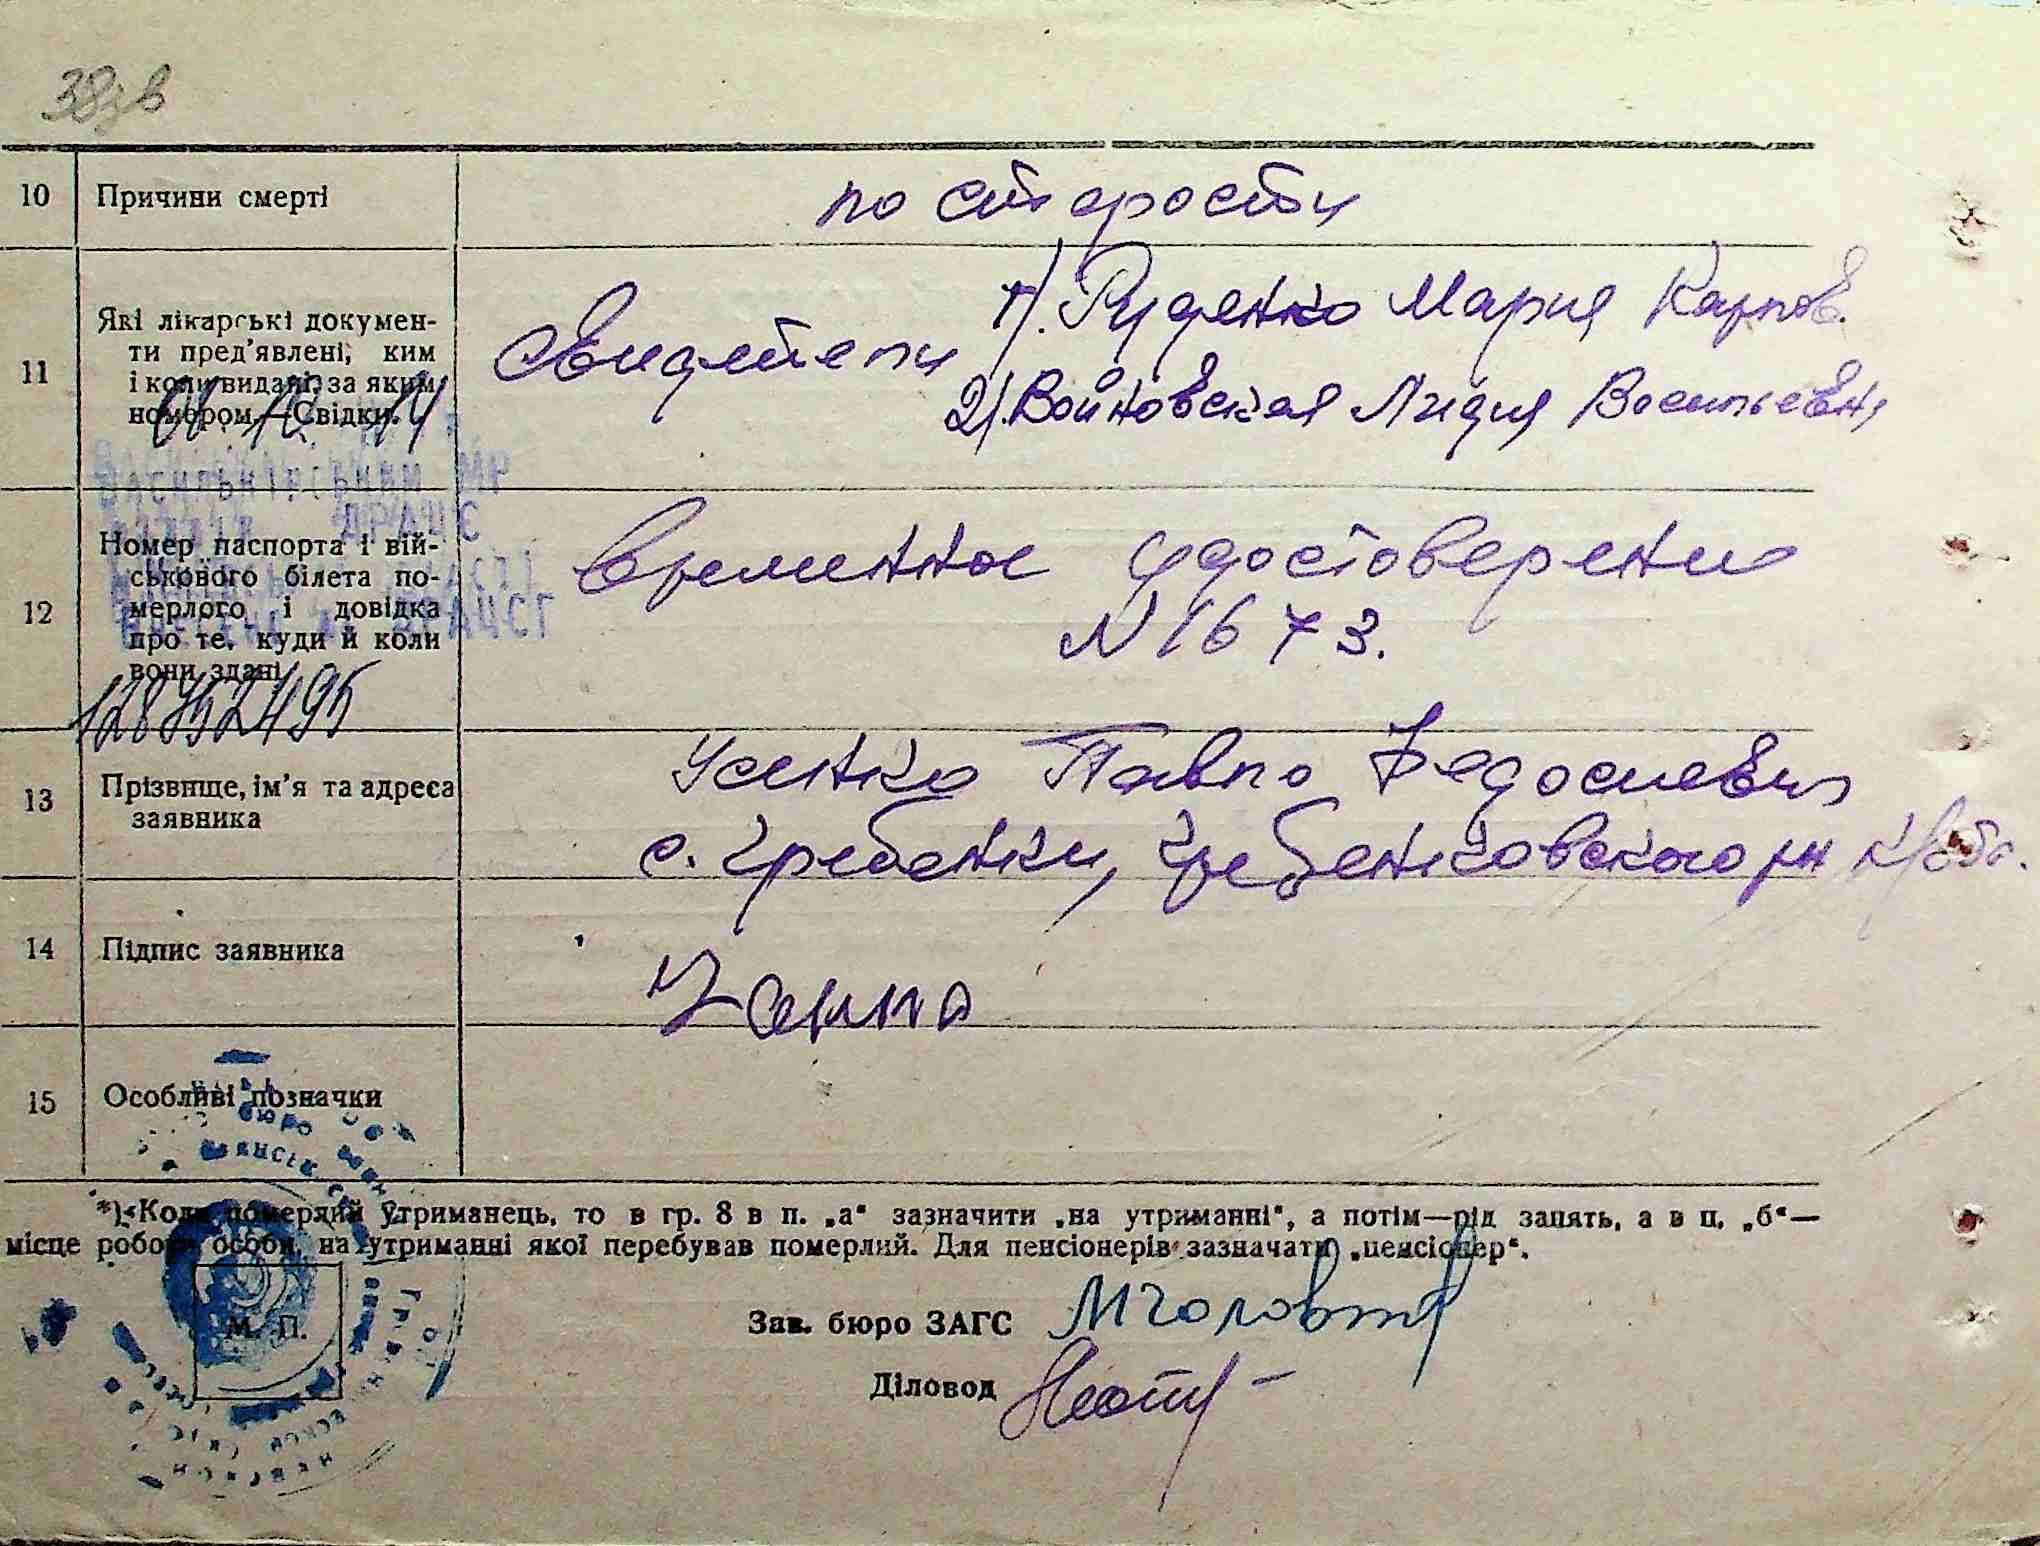 38зв
10 Причини смерті по старости
11 Які лікарські докумен-
ти пред'явлені, ким
і коли видані, за яким
номером.—Свідки.
Свидетели 1). Руденко Мария Карпов.
2). Войновская Лидия Васильевн
01 10 14
ВАСИЛЬКІВСЬКИМ МР
ВІДДІЛ ДРАЦС
12 Номер паспорта і вій-
ськового білета по-
мерлого і довідка
про те, куди й коли
вони здані
Временное удостоверени
N 1673.
128752495
13 Прізвище, ім'я та адреса
заявника
Усенко Павло Федосиевич
с. Гребенки, Гребенковского рн К/обл.
14 Підпис заявника
15 Особливі позначки
*) Коли померлий утриманець, то в гр. 8 в п. „а“ зазначити „на утриманні“, а потім—рід занять, а в п. „б“—
місце роботи особи, на утриманні якої перебував померлий. Для пенсіонерів зазначати „пенсіонер“.
М. П.
Зав. бюро ЗАГС
Діловод